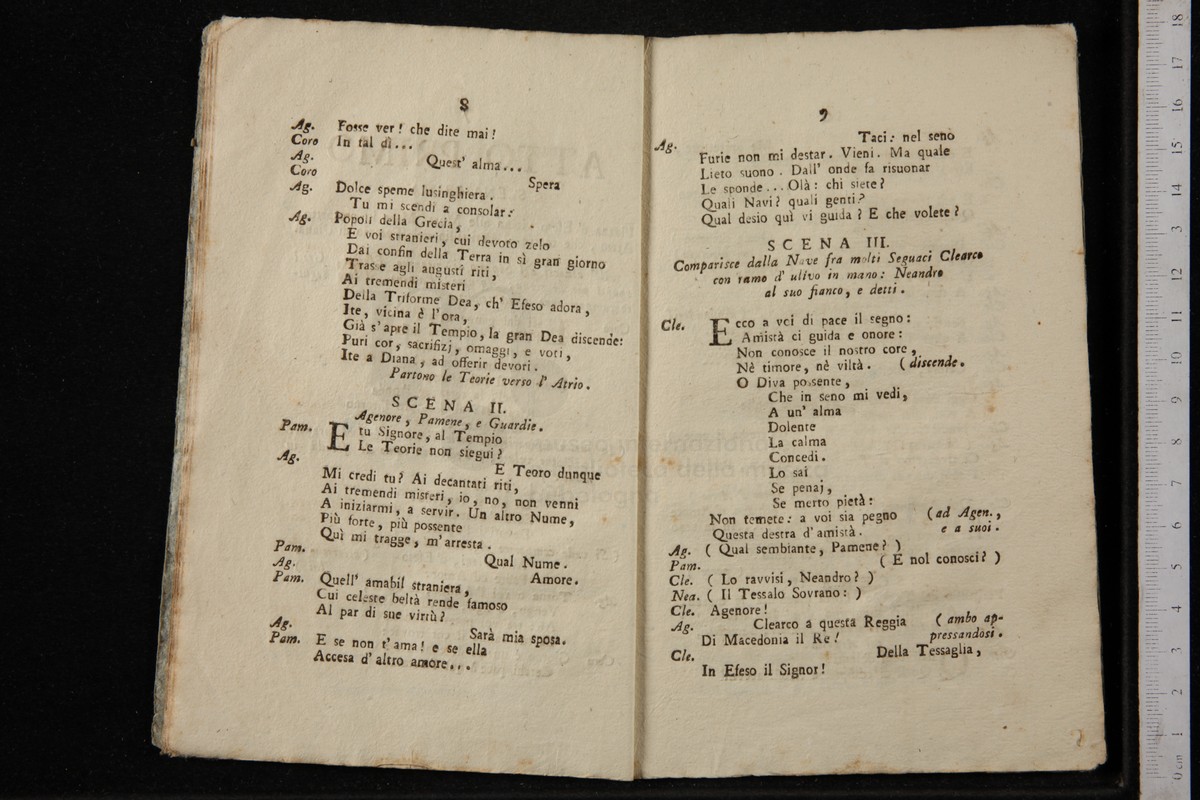 8
Ag. Fosse ver! che dite mai!
Coro In tal dì...
Ag. Quest' alma...
Coro Spera
Ag. Dolce speme lusinghiera.
Tu mi scendi a consolar:
Ag. Popoli della Grecia,
E voi stranieri, cui devoto zelo
Dai confin della Terra in sì gran giorno
Trasse agli augusti riti,
Ai tremendi misteri
Della Triforme Dea, ch' Efeso adora,
Ite, vicina è l'ora,
Già s'apre il Tempio, la gran Dea discende:
Puri cor, sacrifizj, omaggi, e voti,
Ite a Diana, ad offerir devori.
Partono le Teorie verso l' Atrio.
SCENA II.
Agenore, Pamene, e Guardie.
Pam. E tu Signore, al Tempio
Le Teorie non siegui?
Ag. E Teoro dunque
Mi credi tu? Ai decantati riti,
Ai tremendi misteri, io, no, non venni
A iniziarmi, a servir. Un altro Nume,
Più forte, più possente
Quì mi tragge, m'arresta.
Pam. Qual Nume.
Ag. Amore.
Pam. Quell' amabil straniera,
Cui celeste beltà rende famoso
Al par di sue virtù?
Ag. Sarà mia sposa.
Pam. E se non t'ama! e se ella
Accesa d'altro amore...
9
Ag. Taci: nel seno
Furie non mi destar. Vieni. Ma quale
Lieto suono. Dall' onde fa risuonar
Le sponde... Olà: chi siete?
Quali Navi? quali genti?
Qual desio quì vi guida? E che volete?
SCENA III.
Comparisce dalla Nave fra molti Seguaci Clearco
con ramo d' ulivo in mano: Neandro
al suo fianco, e detti.
Cle. Ecco a voi di pace il segno:
Amistà ci guida e onore:
Non conosce il nostro core,
Nè timore, nè viltà. (discende.
O Diva possente,
Che in seno mi vedi,
A un' alma
Dolente
La calma
Concedi.
Lo sai
Se penai,
Se merto pietà:
Non temete: a voi sia pegno (ad Agen.,
Questa destra d'amistà. e a suoi.
Ag. (Qual sembiante, Pamene?)
Pam. (E nol conosci?)
Cle. (Lo ravvisi, Neandro?)
Nea. (Il Tessalo Sovrano:)
Cle. Agenore!
Ag. Clearco a questa Reggia (ambo ap-
Di Macedonia il Re! pressandosi.
Cle. Della Tessaglia,
In Efeso il Signor!